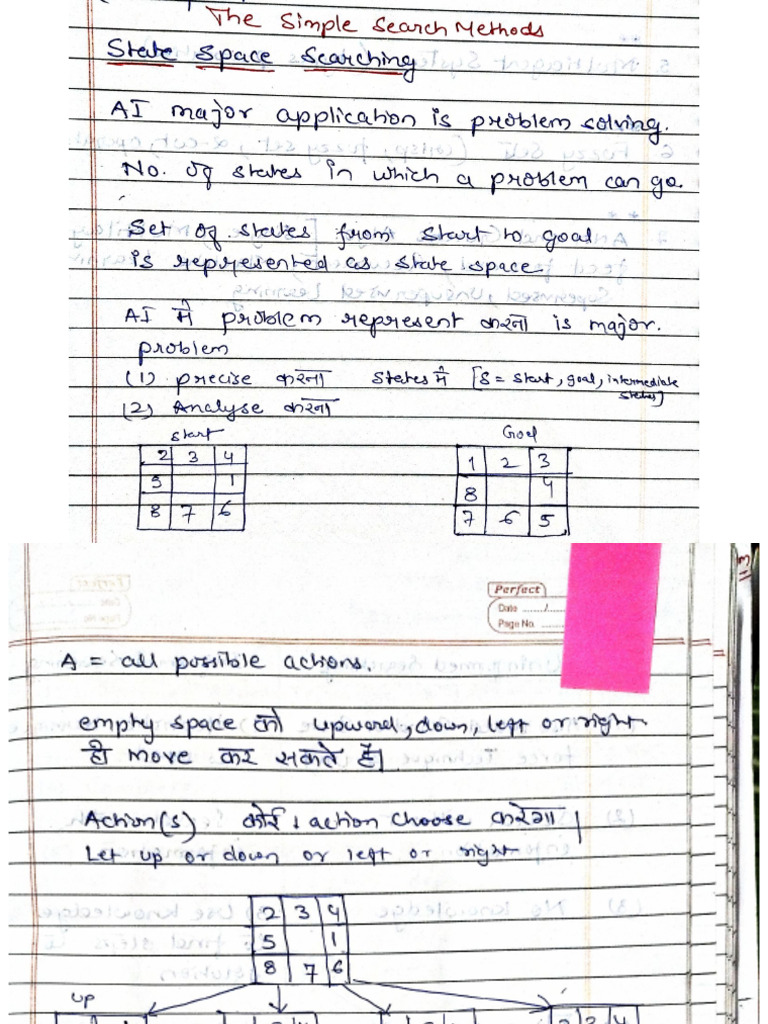 The Simple Search Methods
State Space Searching
AI major application is problem solving.
No. of states in which a problem can go.
Set of states from start to goal
is represented as state space.
AI में problem represent करना is major.
problem
(1) precise करना states में [S = start, goal, intermediate
states]
(2) Analyse करना
start Goal
2 3 4 1 2 3
5 1 8 4
8 7 6 7 6 5
Perfect
Date ....../......
Page No. ......
A = all possible actions.
empty space को upward, down, left or right
ही move कर सकते हैं।
Action(s) कोई 1 action choose करेगा।
Let up or down or left or right
2 3 4
5 1
8 7 6
up
2 3 4